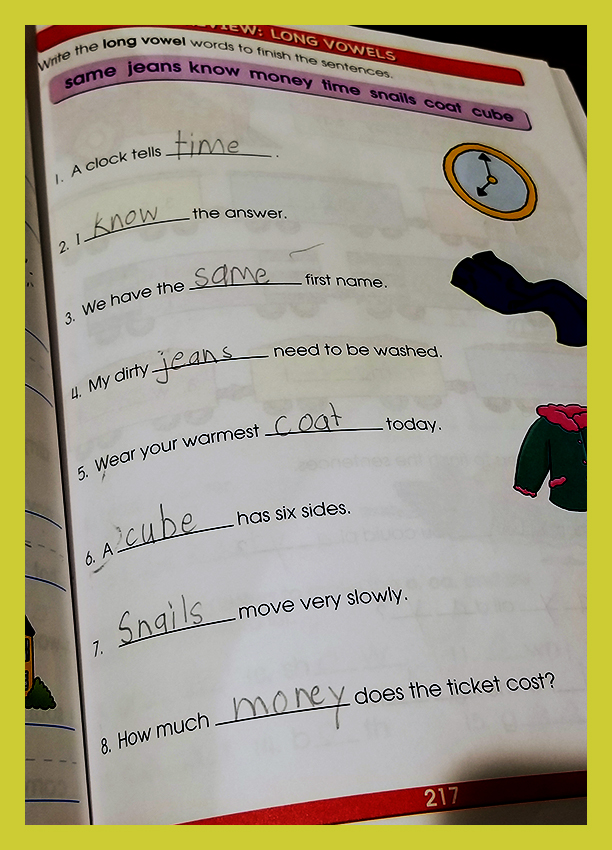 REVIEW: LONG VOWELS
Write the long vowel words to finish the sentences.
same jeans know money time snails coat cube
1. A clock tells time.
2. I know the answer.
3. We have the same first name.
4. My dirty jeans need to be washed.
5. Wear your warmest coat today.
6. A cube has six sides.
7. Snails move very slowly.
8. How much money does the ticket cost?
217